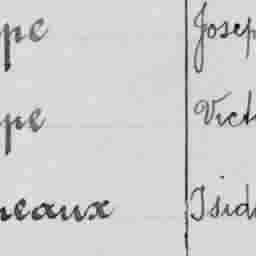 pe Josep
pe Vict
neaux Isid